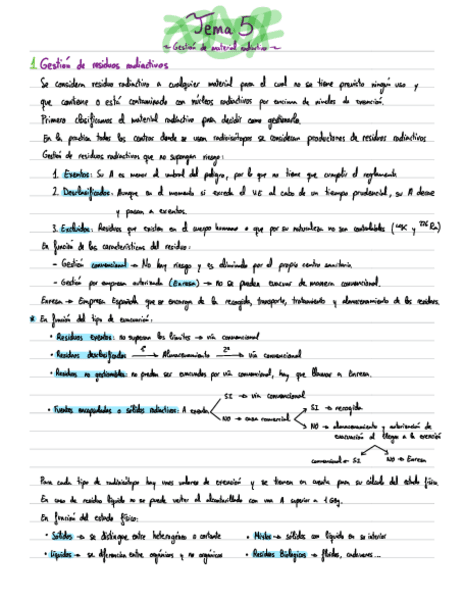 Tema 5
~ Gestión de material radiactivo ~
1. Gestión de residuos radiactivos
Se considera residuo radiactivo a cualquier material para el cual no se tiene previsto ningún uso y
que contiene o está contaminado con núcleos radiactivos por encima de niveles de exención.
Primero clasificamos el material radiactivo para decidir como gestionarlo.
En la práctica todos los centros donde se usan radioisótopos se consideran productores de residuos radiactivos
Gestión de residuos radiactivos que no supongan riesgo:
1. Exentos: Su A es menor al umbral del peligro, por lo que no tiene que cumplir el reglamento
2. Desclasificados: Aunque en el momento si excede el V.E al cabo de un tiempo prudencial, su A decae
y pasan a exentos.
3. Excluidos: Residuos que existen en el cuerpo humano o que por su naturaleza no son controlables (⁴⁰K y ²²⁶Ra)
En función de las características del residuo:
- Gestión convencional → No hay riesgo y es eliminado por el propio centro sanitario.
- Gestión por empresa autorizada (Enresa) → no se pueden evacuar de manera convencional.
Enresa → Empresa Española que se encarga de la recogida, transporte, tratamiento y almacenamiento de los residuos.
* En función del tipo de evacuación:
• Residuos exentos: no superan los límites → vía convencional
• Residuos desclasificados 1º→ Almacenamiento 2º→ vía convencional
• Residuos no gestionables: no pueden ser evacuados por vía convencional, hay que llamar a Enresa.
SI → vía convencional
• Fuentes encapsuladas o sólidos radiactivos: A exenta
NO → casa comercial
SI → recogida
NO → almacenamiento y autorización de
evacuación al llegar a la exención
convencional ← SI NO → Enresa
Para cada tipo de radioisótopo hay unos valores de exención y se tienen en cuenta para su cálculo del estado físico.
En caso de residuo líquido no se puede verter al alcantarillado con una A superior a 1 GBq.
En función del estado físico:
• Sólidos → se distingue entre heterogéneo o cortante
• Mixtos → sólidos con líquido en su interior
• Líquidos → se diferencian entre orgánicos y no orgánicos
• Residuos Biológicos → fluidos, cadáveres...